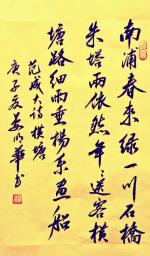 南浦春来绿一川石橋
朱塔两依然年々送客横
塘路细雨垂楊系画船
范成大诗横塘
庚子夏